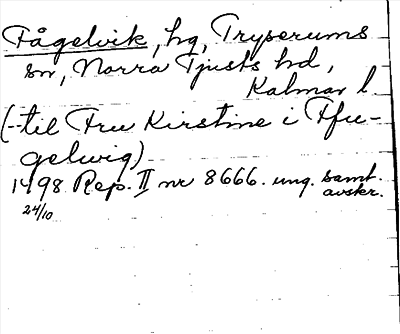 Fågelvik, hg, Tryserums
sn, Norra Tjusts hd,
Kalmar l.
(-til Fru Kirstine i Ffu-
gelwig)
1498 Rep. II nr 8666. ung. samt.
avskr.
24/10